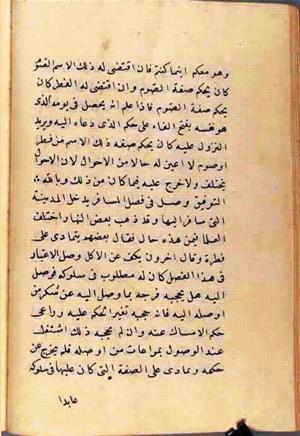 وهو معكم اينما كنتم فان اقتضى له ذلك الاسم الصوم
كان بحكم صفة الصوم وان اقتضى له الفطر كان
بحكم صفة الصوم فاذا علم انه يحصل في يومه الذى
هو فيه بفتح الفاء على حكم الذى دعاه اليه ويريد
النزول عليه كان بحكم صفة ذلك الاسم من فطر
اوصوم لا اعين له حالا من الاحوال لان الاحوال
تختلف ولا حرج عليه فيما كان من ذلك وبالله
التوفيق وصل في فصل المسافر يدخل المدينة
التى سافر اليها وقد ذهب بعض النهار اختلف
العلما فيمن هذه حال فقال بعضهم يتمادى على
فطره وقال اخرون يكف عن الاكل وصل الاعتبار
في هذا الفصل كان له مطلوب في سلوكه فوصل
اليه هل يحجبه فرحه بما وصل اليه عن شكر من
اوصله اليه فان حجبه تغير الحكم عليه وراعى
حكم الامساك عنه وان لم يحجبه ذلك اشتغل
عند الوصول بمراعات من اوصله فلم يخرج عن
حكمه وتمادى على الصفة التى كان عليها في سلوكه
عابدا